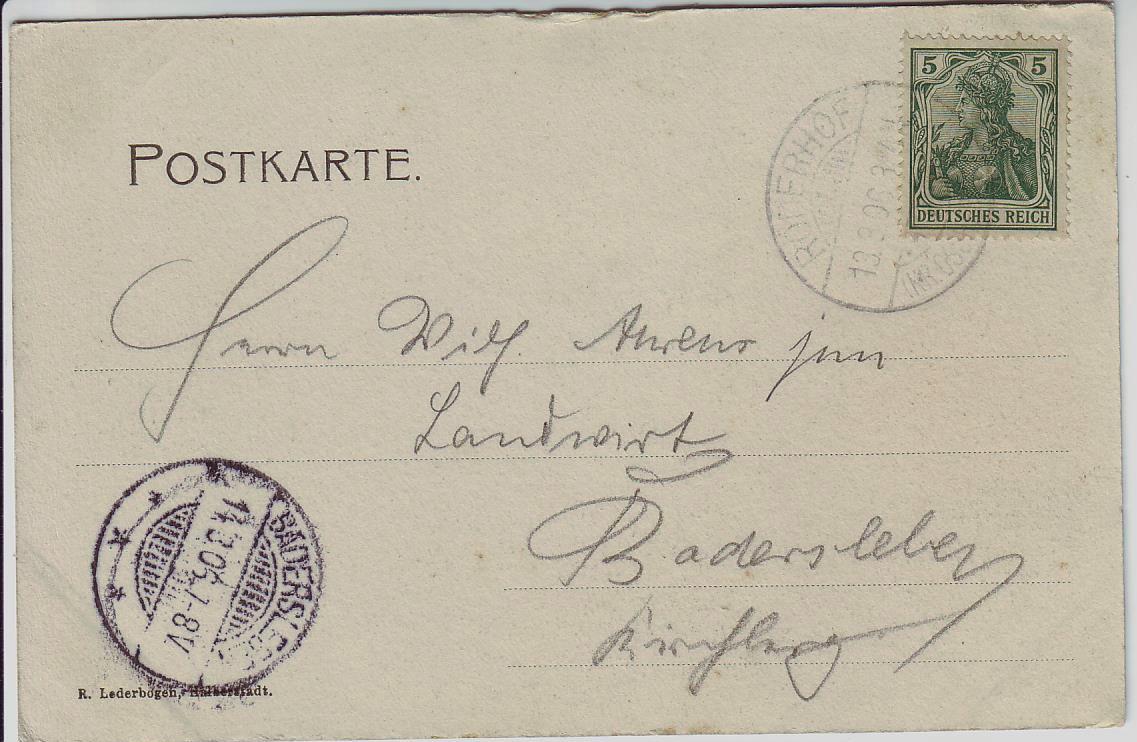 5 5
DEUTSCHES REICH
POSTKARTE.
13.3.06.
Herrn Wilh. Ahrens jun
Landwirt
Badersleben
Kirchberg
BADERSLEBEN
14.3.06. 7-8V
R. Lederbogen, Halberstadt.